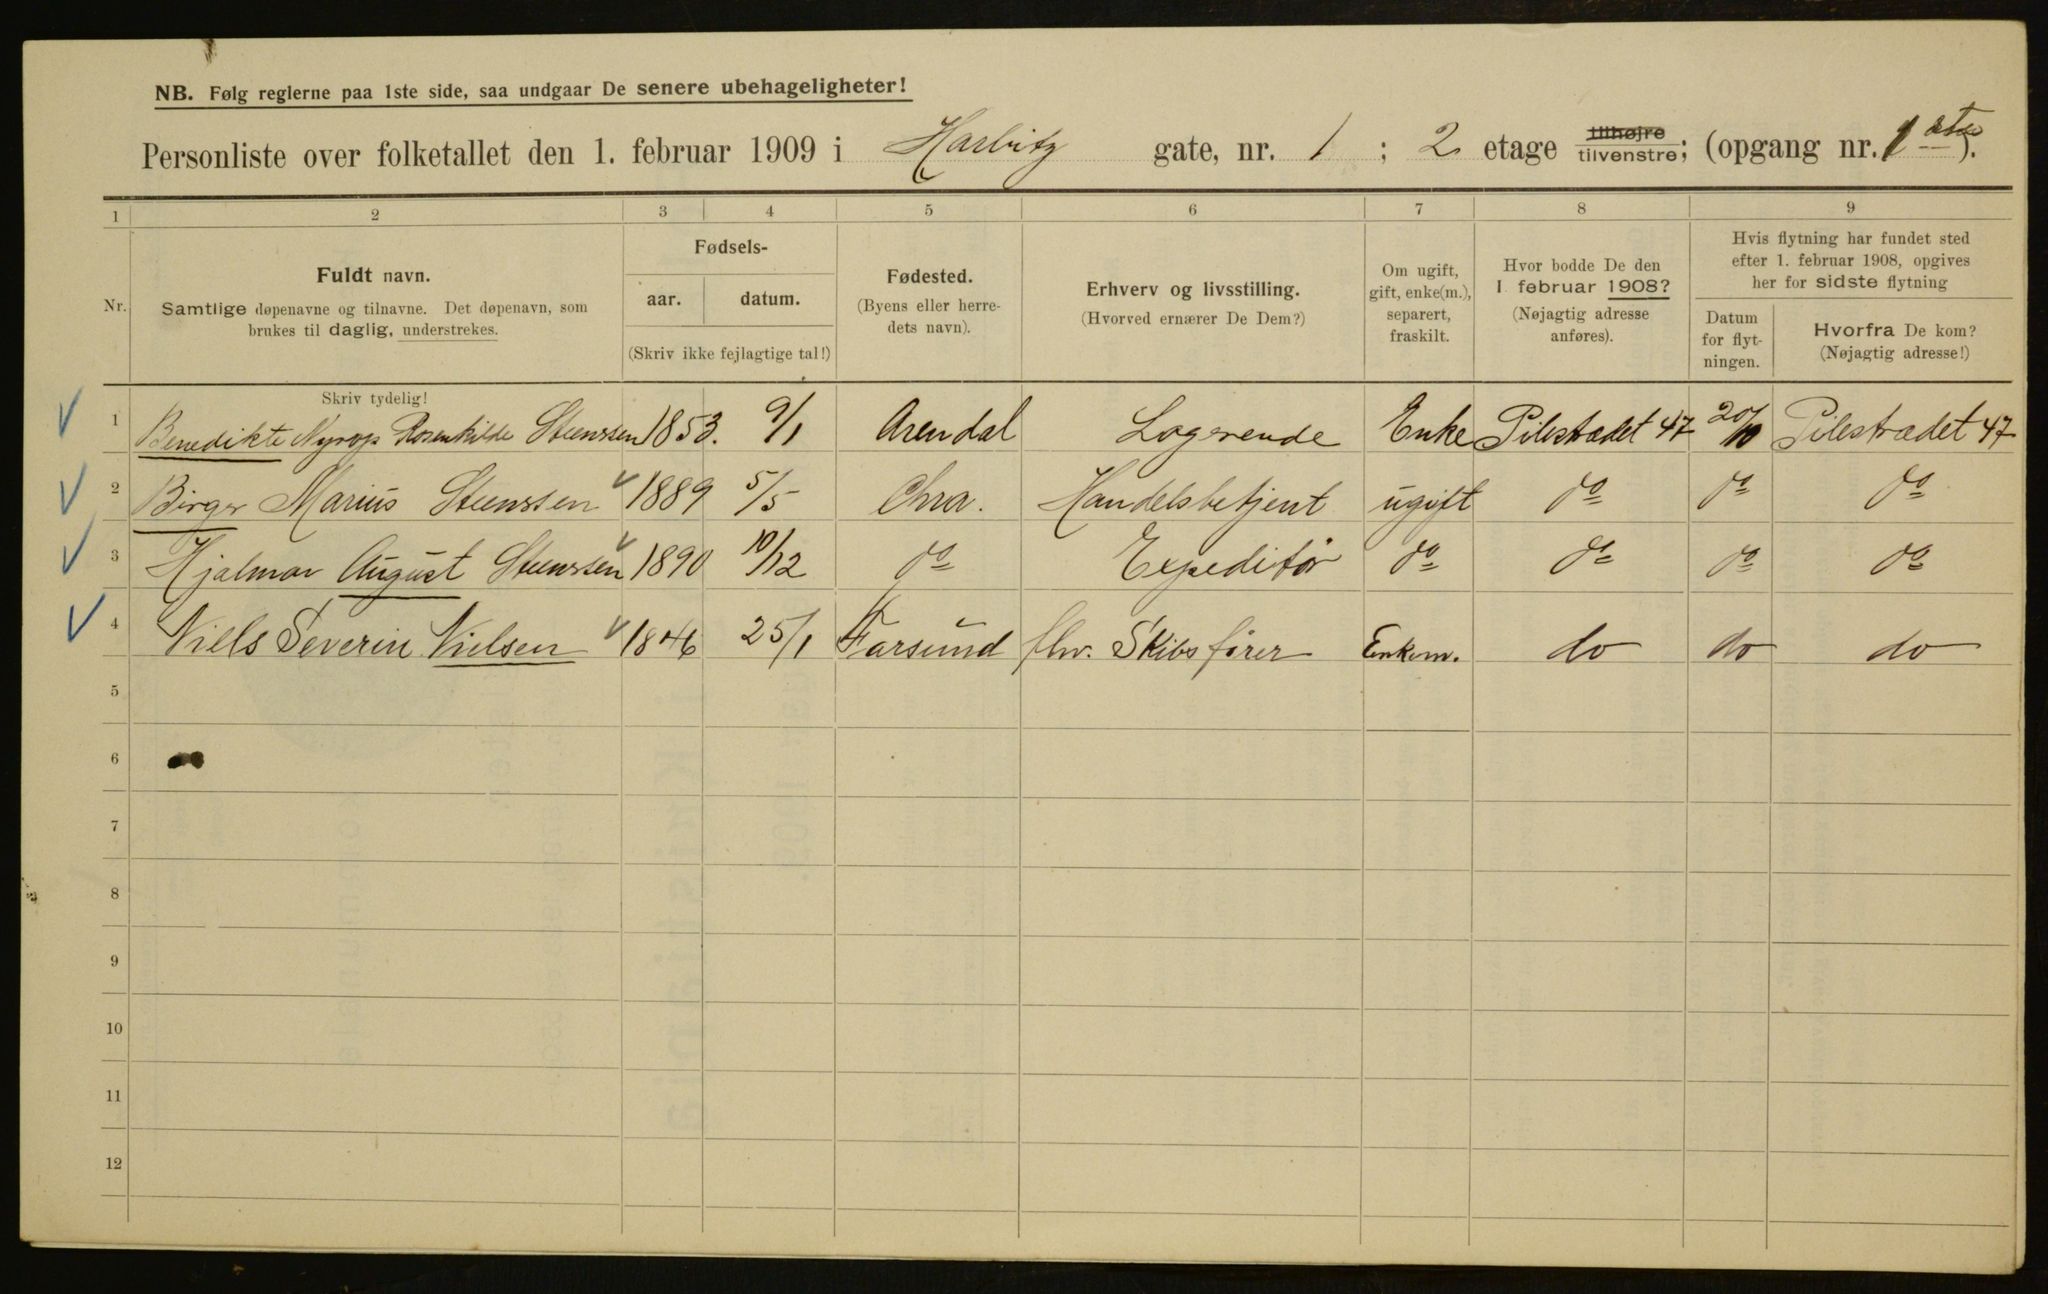 NB. Følg reglerne paa 1ste side, saa undgaar De senere ubehageligheter!
Personliste over folketallet den 1. februar 1909 i Harbitz gate, nr. 1 ; 2 etage tilhøjre tilvenstre; (opgang nr. 1 ).
1 2 3 4 5 6 7 8 9
Nr.
Fuldt navn.
Samtlige døpenavne og tilnavne. Det døpenavn, som
brukes til daglig, understrekes.
Skriv tydelig!
Fødsels-
aar. datum.
(Skriv ikke fejlagtige tal!)
Fødested.
(Byens eller herre-
dets navn).
Erhverv og livsstilling.
(Hvorved ernærer De Dem?)
Om ugift,
gift, enke(m.),
separert,
fraskilt.
Hvor bodde De den
1. februar 1908?
(Nøjagtig adresse
anføres).
Hvis flytning har fundet sted
efter 1. februar 1908, opgives
her for sidste flytning
Datum
for flyt-
ningen.
Hvorfra De kom?
(Nøjagtig adresse!)
1 Benedikte Nyrop Rosenkilde Steenssen 1853. 9/1 Arendal Logerende Enke Pilestrædet 47 20/10 Pilestrædet 47
2 Birger Marius Steenssen 1889 5/5 Chra. Handelsbetjent ugift do do do
3 Hjalmar August Steenssen 1890 10/12 do Expeditør do do do do
4 Niels Severin Nielsen 1846 25/1 Farsund fhv. Skibsfører Enkem. do do do
5
6
7
8
9
10
11
12